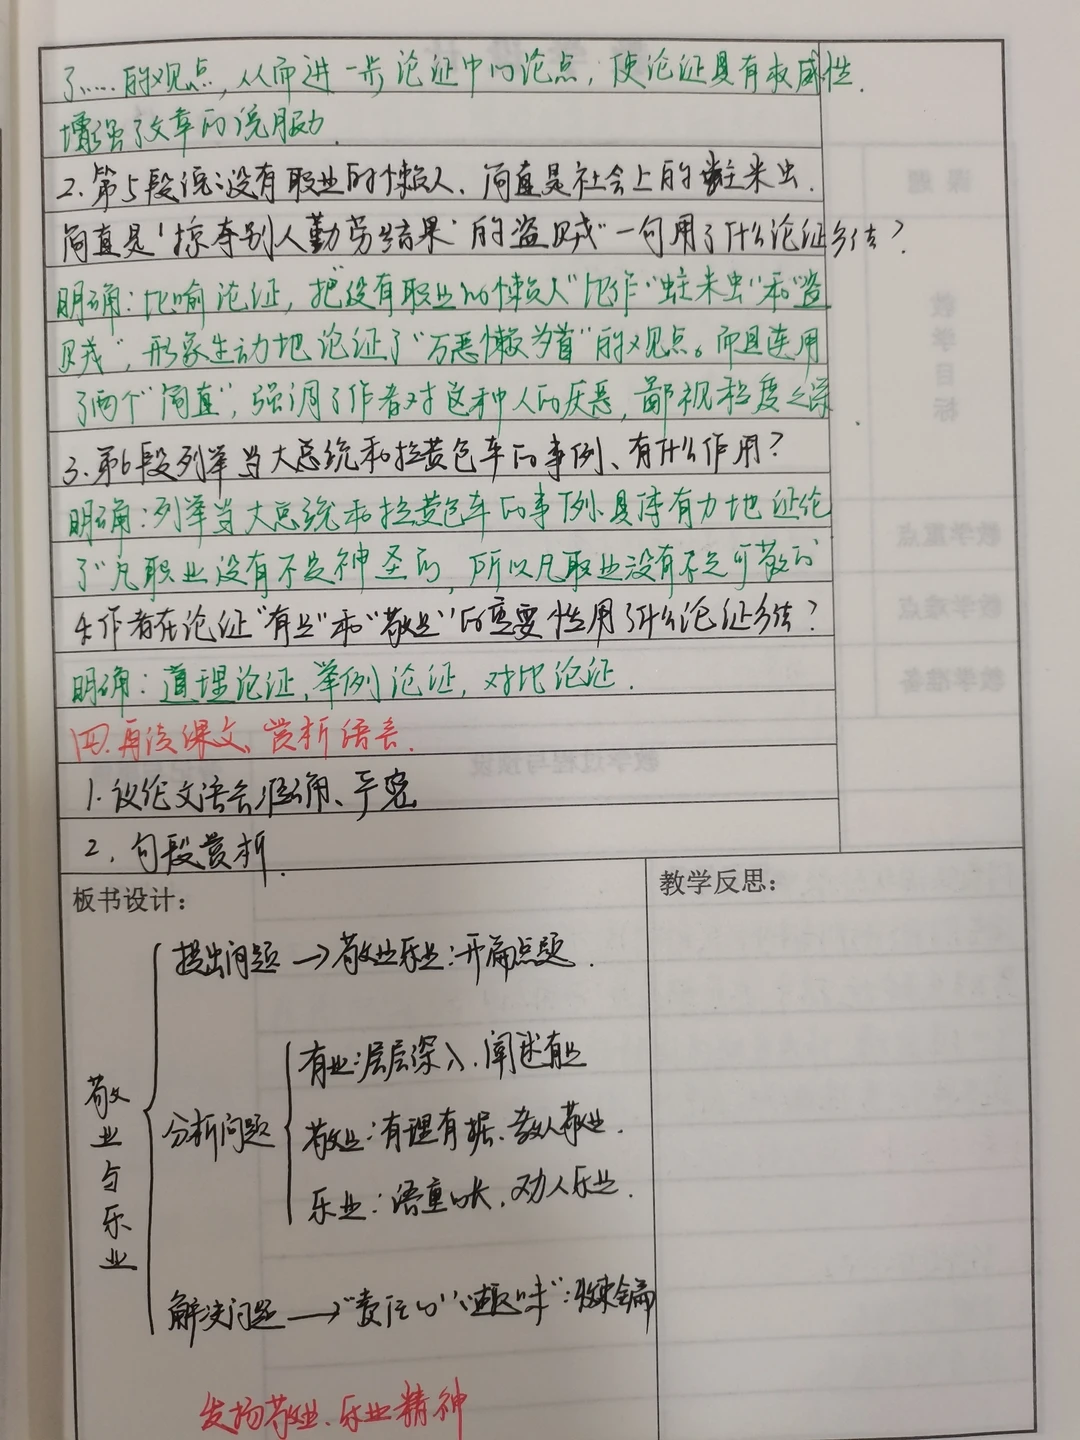 了……的观点，从而进一步论证中心论点，使论证具有权威性.
增强了文章的说服力.
2.第5段说:没有职业的懒人、简直是社会上的蛀米虫.
简直是'掠夺别人勤劳结果'的盗贼"一句用了什么论证方法？
明确：比喻论证，把"没有职业的懒人"比作"蛀米虫"和"盗
贼"，形象生动地论证了"万恶懒为首"的观点。而且连用
了两个"简直"，强调了作者对这种人的厌恶，鄙视程度之深
3.第6段列举当大总统和拉黄包车的事例、有什么作用？
明确：列举当大总统和拉黄包车的事例、具体有力地证论
了"凡职业没有不是神圣的，所以凡职业没有不是可敬的"
4.作者在论证"有业"和"敬业"的重要性用了什么论证方法？
明确：道理论证，举例论证，对比论证.
四.再读课文、赏析语言.
1.议论文语言准确、严密
2.句段赏析.
板书设计：
教学反思：
敬业与乐业
提出问题→敬业乐业:开篇点题.
分析问题
有业:层层深入.阐述有业
敬业:有理有据、教人敬业.
乐业:语重心长，劝人乐业.
解决问题→"责任心""趣味":收束全篇
发扬敬业、乐业精神
课题
教学目标
教学重点
教学难点
教学准备
教学过程与预设